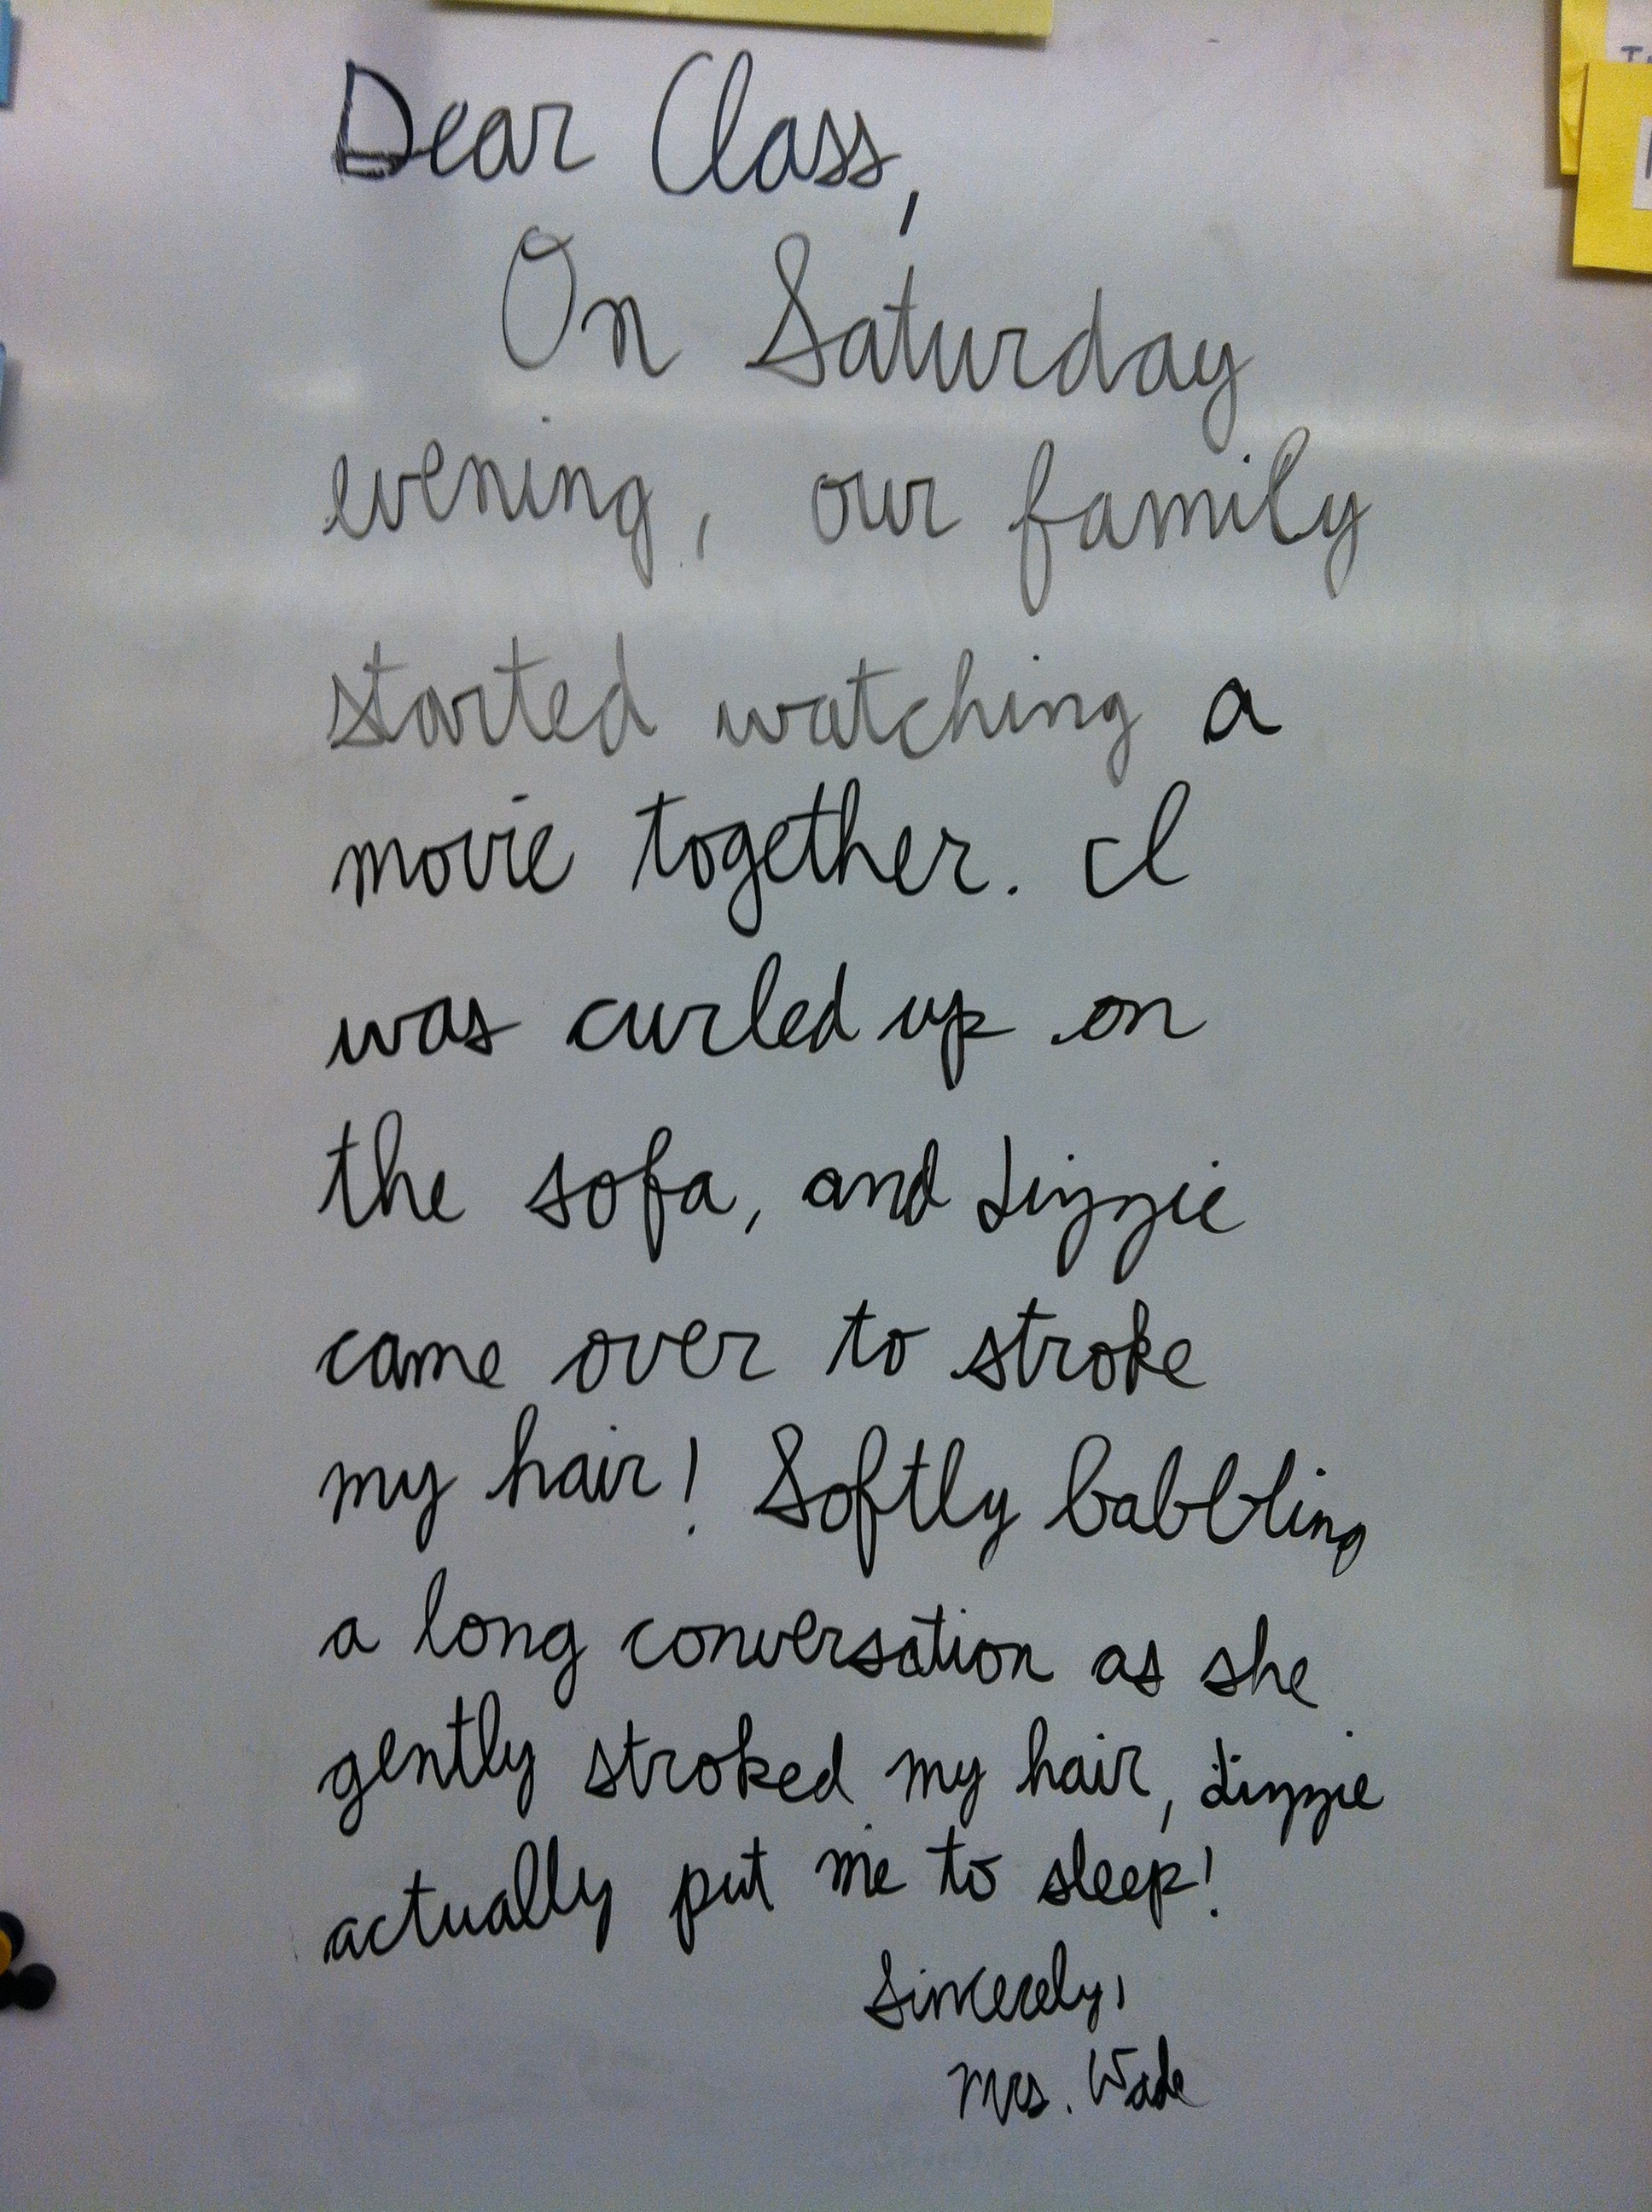 Dear Class,
On Saturday
evening, our family
started watching a
movie together. I
was curled up on
the sofa, and Lizzie
came over to stroke
my hair! Softly babbling
a long conversation as she
gently stroked my hair, Lizzie
actually put me to sleep!
Sincerely,
Mrs. Wade